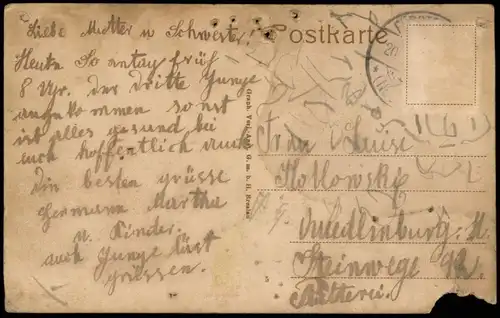 Liebe Mutter u Schwester!
Heute Sontag früh
8 Uhr. der dritte Junge
angekommen sonst
ist alles gesund bei
euch hoffentlich auch
die besten grüsse
Hermann Martha
u. Kinder.
auch Junge läst
grüssen.
Postkarte
Graph. Verl.-Anst. G. m. b. H. Breslau
Frau Luise
Kotlowski
Quedlinburg. H.
Steinwege 92.
5